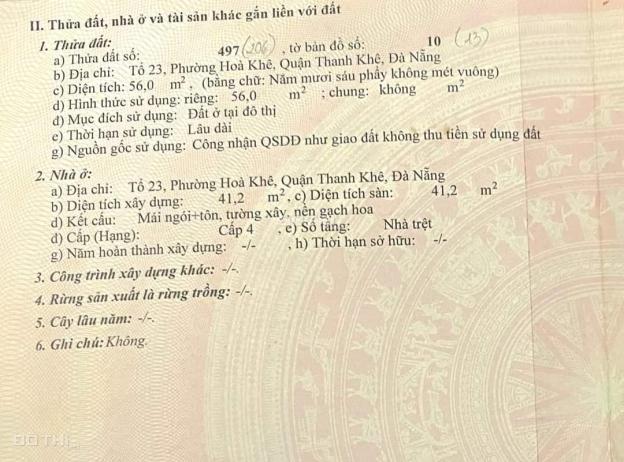 II. Thửa đất, nhà ở và tài sản khác gắn liền với đất
1. Thửa đất:
a) Thửa đất số: 497 (206) , tờ bản đồ số: 10 (13)
b) Địa chỉ: Tổ 23, Phường Hoà Khê, Quận Thanh Khê, Đà Nẵng
c) Diện tích: 56,0 m², (bằng chữ: Năm mươi sáu phẩy không mét vuông)
d) Hình thức sử dụng: riêng: 56,0 m² ; chung: không m²
đ) Mục đích sử dụng: Đất ở tại đô thị
e) Thời hạn sử dụng: Lâu dài
g) Nguồn gốc sử dụng: Công nhận QSDĐ như giao đất không thu tiền sử dụng đất
2. Nhà ở:
a) Địa chỉ: Tổ 23, Phường Hoà Khê, Quận Thanh Khê, Đà Nẵng
b) Diện tích xây dựng: 41,2 m², c) Diện tích sàn: 41,2 m²
d) Kết cấu: Mái ngói+tôn, tường xây, nền gạch hoa
đ) Cấp (Hạng): Cấp 4 , e) Số tầng: Nhà trệt
g) Năm hoàn thành xây dựng: -/- , h) Thời hạn sở hữu: -/-
3. Công trình xây dựng khác: -/-.
4. Rừng sản xuất là rừng trồng: -/-.
5. Cây lâu năm: -/-.
6. Ghi chú: Không.